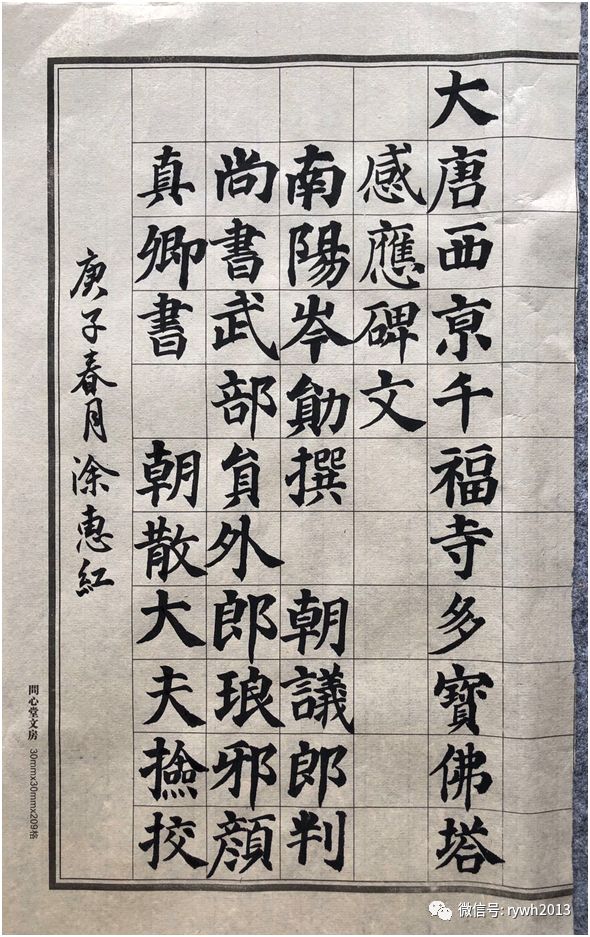 大唐西京千福寺多寶佛塔
感應碑文
南陽岑勛撰 朝議郎判
尚書武部貟外郎琅邪顔
真卿書 朝散大夫撿挍
庚子春月涂惠紅
問心堂文房 30mmx30mmx209格
微信号: rywh2013